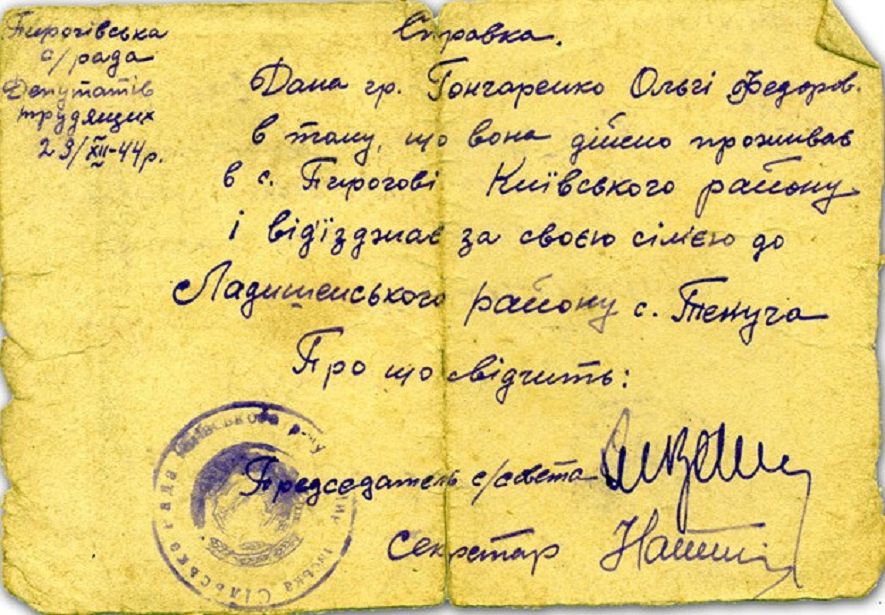 Пирогівська
с/рада
Депутатів
трудящих
23/XII-44р.
Справка.
Дана гр. Гончаренко Ользі Федоров.
в тому, що вона дійсно проживає
в с. Пирогові Київського району
і від'їзджає за своєю сім'єю до
Ладишенського району с. Тенуча
Про що свідчить:
Председатель с/совета
Секретар
Сільська рада Київського р-ну